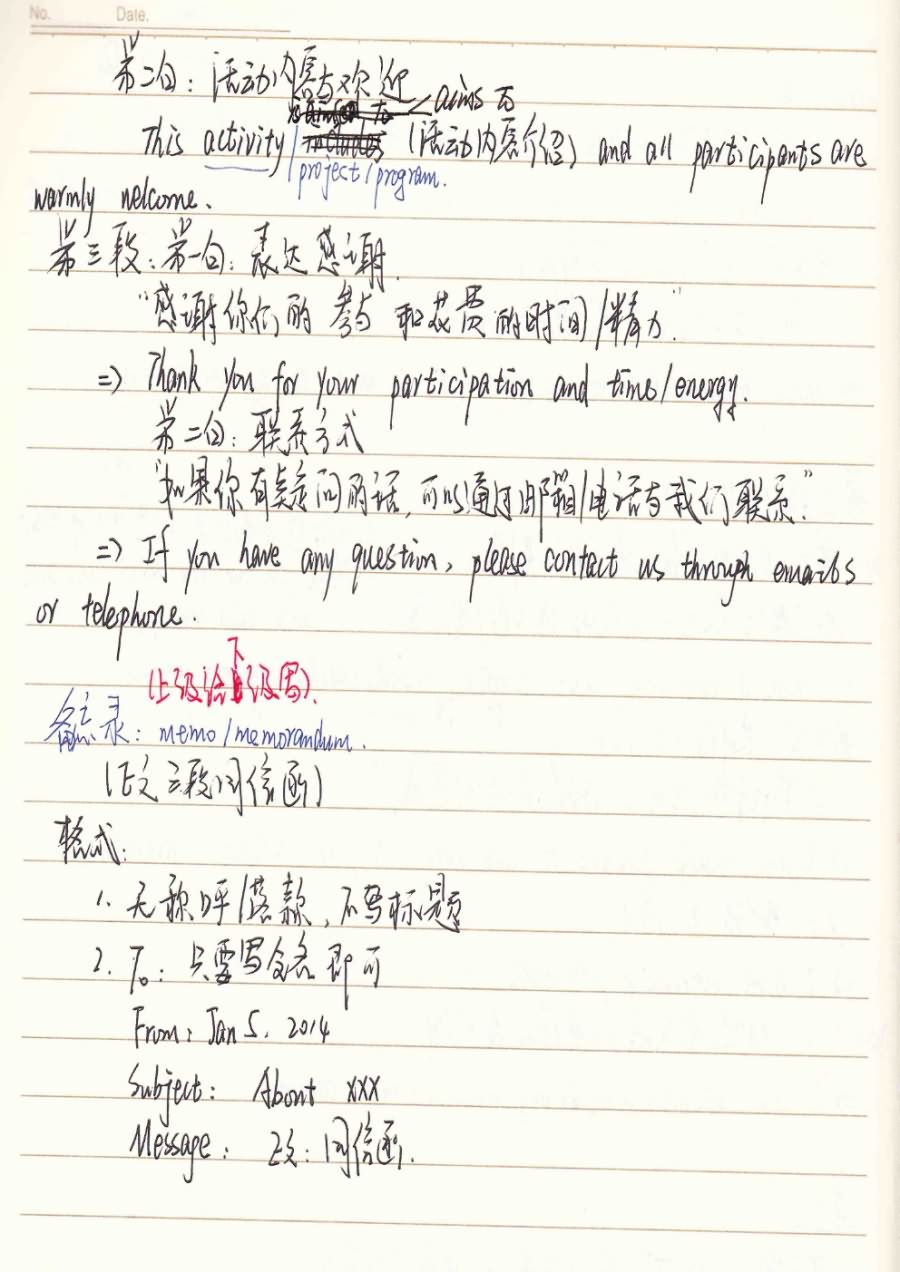 No. Date.
第二句：活动内容与欢迎
aims to
This activity/ (活动内容介绍) and all participants are
project/program.
warmly welcome.
第三段：第一句：表达感谢.
"感谢你们的参与和花费的时间/精力"
=> Thank you for your participation and time/energy.
第二句：联系方式
"如果你有疑问的话, 可以通过邮箱/电话与我们联系."
=> If you have any question, please contact us through emails
or telephone.
(上级给下级写).
备忘录: memo/memorandum.
(正文三段同信函)
格式:
1. 无称呼/落款, 不写标题
2. To: 只要写全名即可
From: Jan 5. 2014
Subject: About xxx
Message: 正文: 同信函.